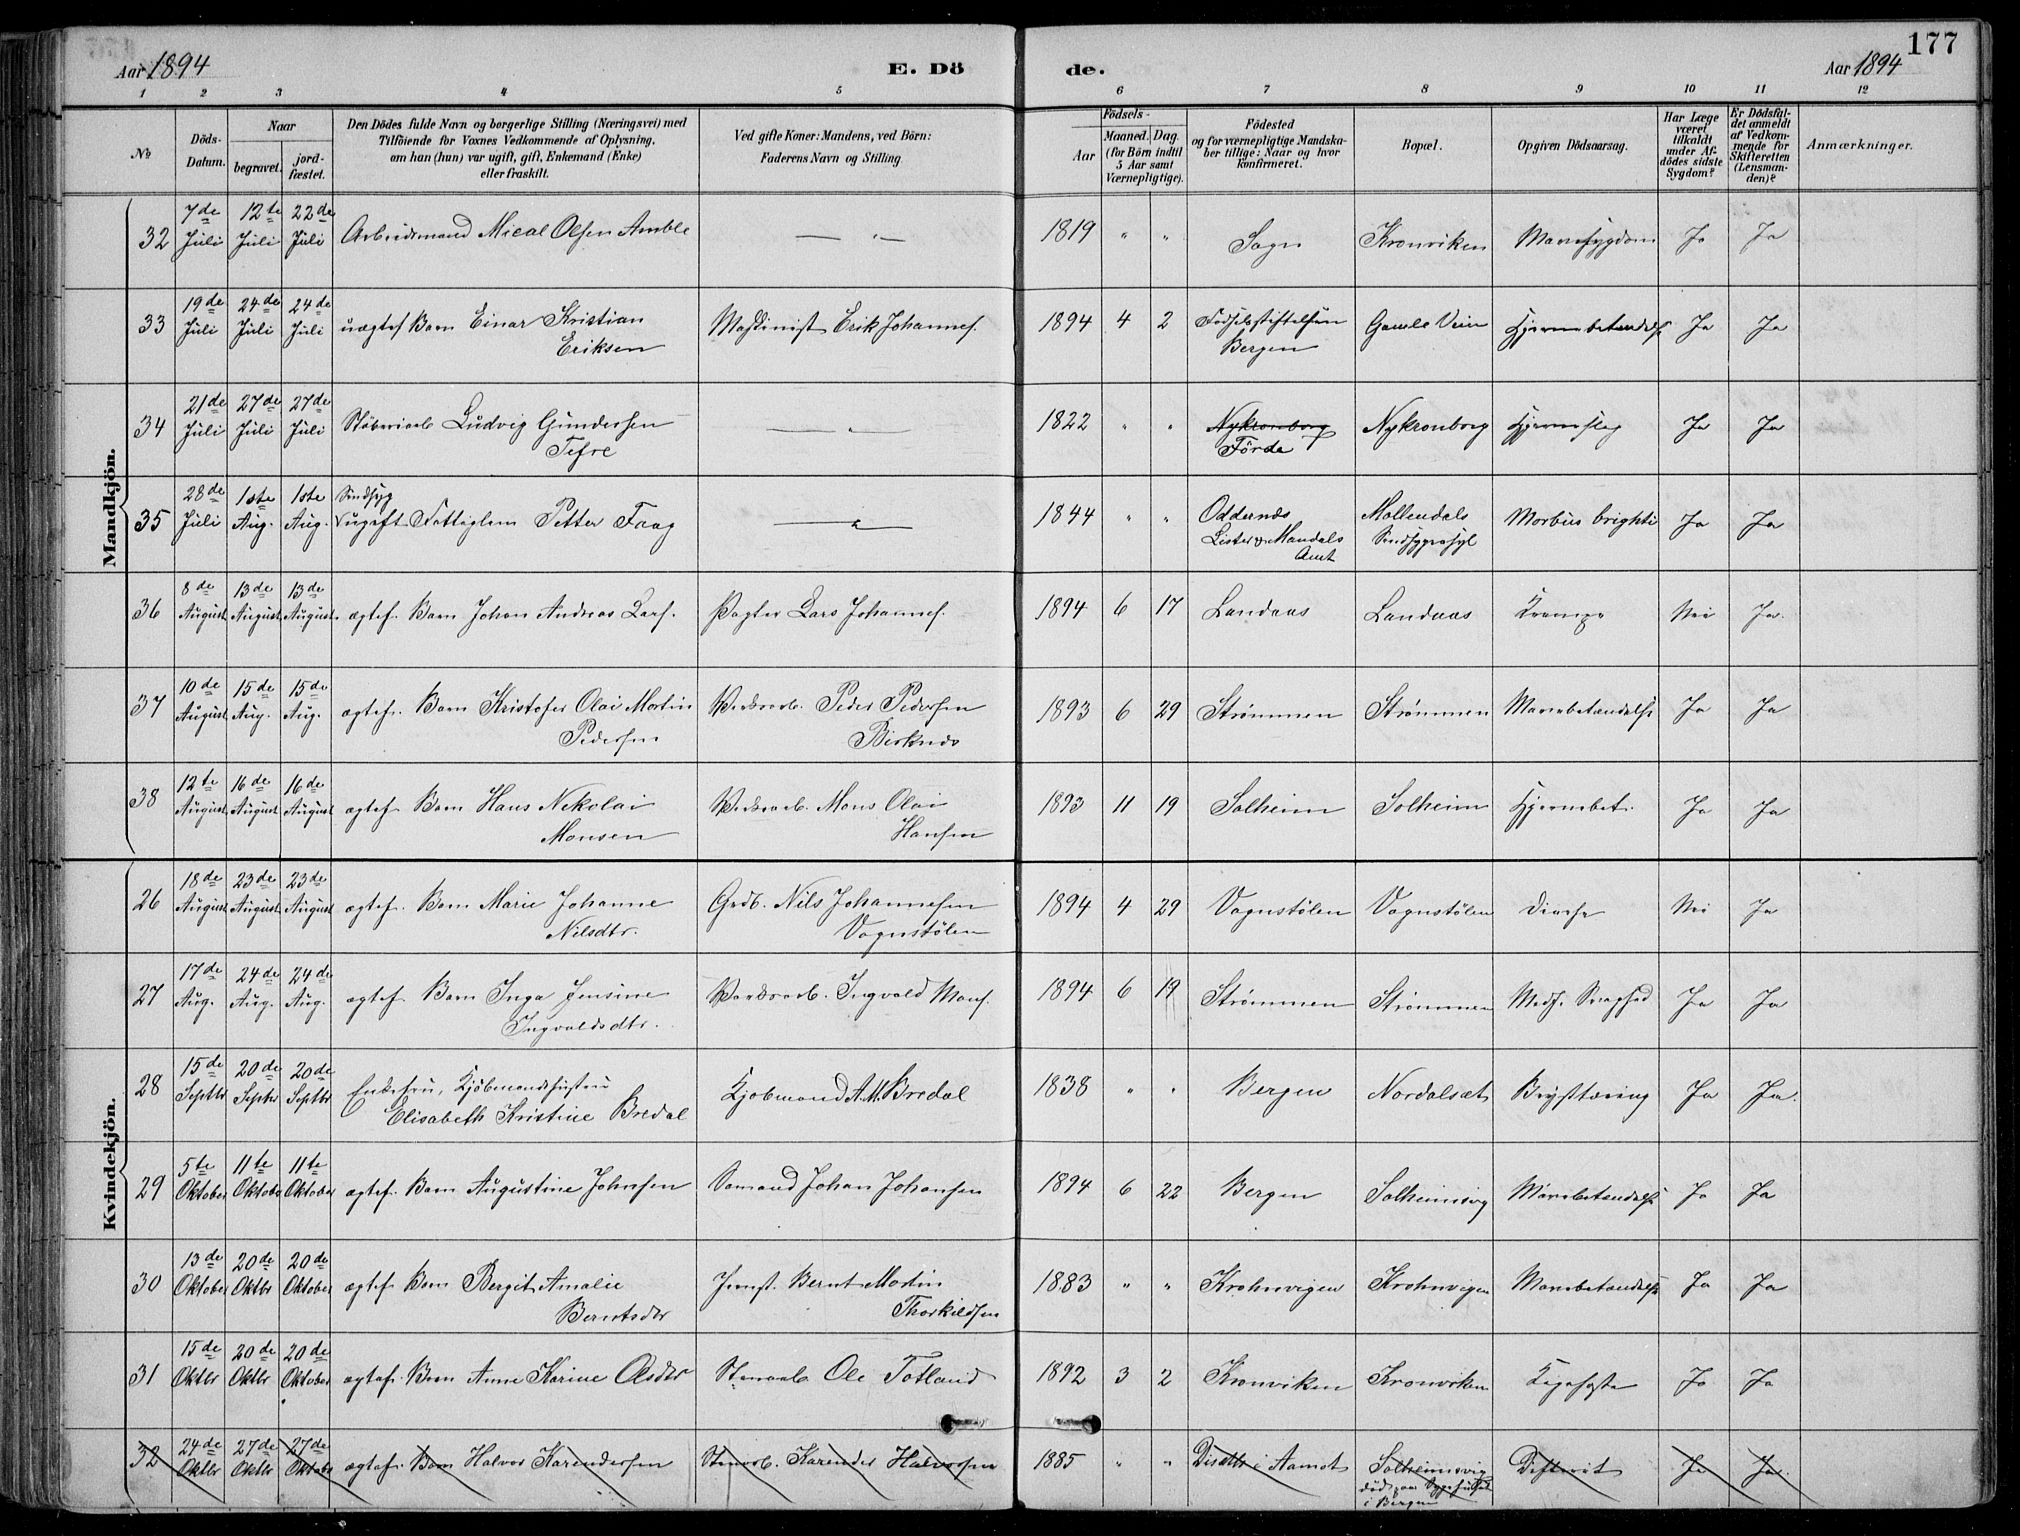 177
Aar 1894
E. Dö
de.
Aar 1894
1 2 3 4 5 6 7 8 9 10 11 12
No
Döds-Datum.
Naar
begravet.
jord-fæstet.
Den Dödes fulde Navn og borgerlige Stilling (Næringsvei) med
Tilföiende for Voxnes Vedkommende af Oplysning,
om han (hun) var ugift, gift, Enkemand (Enke)
eller fraskilt.
Ved gifte Koner: Mandens, ved Börn:
Faderens Navn og Stilling.
Födsels-
Aar
Maaned. Dag.
(for Börn indtil
5 Aar samt
Værnepligtige).
Födested
og for værnepligtige Mandska-
ber tillige: Naar og hvor
konfirmeret.
Bopæl.
Opgiven Dödsaarsag.
Har Læge
været
tilkaldt
under Af-
dödes sidste
Sygdom?
Er Dödsfal-
det anmeldt
af Vedkom-
mende for
Skifteretten
(Lensman-
den)?
Anmærkninger.
Mandkjön.
32 7de Juli 12te Juli 22de Juli Arbeidsmand Mical Olsen Amble — " — 1819 " " Sogn Kronviken Mavesygdom Ja Ja
33 19de Juli 24de Juli 24de Juli uægtef Barn Einar Kristian
Eriksen Maskinist Erik Johannes. 1894 4 2 Fødselsstiftelsen
Bergen Gamle Veien Hjernebetændelse Ja Ja
34 21de Juli 27de Juli 27de Juli Støberiarb Ludvig Gundersen
Tefre — " — 1822 " " Nykronborg
Förde Nykronborg Hjerneslag Ja Ja
35 28de Juli 1ste Aug. 1ste Aug. Sindsyg
ugift Fattiglem Petter Faag — " — 1844 " " Oddernes
Lister & Mandals
Amt Møllendals
Sindsygeasyl Morbus brighti Ja Ja
36 8de August 13de August 13de August ægtef. Barn Johan Andreas Lars. Pagter Lars Johannes. 1894 6 17 Landaas Landaas Krampe Nei Ja.
37 10de August 15de Aug. 15de Aug. ægtef. Barn Kristofer Olai Martin
Pedersen Værksarb. Peder Pedersen
Birknes 1893 6 29 Strømmen Strømmen Mavebetændelse Ja Ja
38 12te August 16de August 16de August ægtef Barn Hans Nikolai
Monsen Værksarb. Mons Olai
Hansen 1893 11 19 Solheim Solheim Hjernebet. Ja Ja
Kvindekjön.
26 18de August 23de August 23de August ægtef. Barn Marie Johanne
Nilsdtr. Grdb. Nils Johannesen
Vognstölen 1894 4 29 Vognstölen Vognstölen Diarhe Nei Ja
27 17de Aug. 24de Aug. 24de Aug. ægtef Barn Inga Jensine
Ingvaldsdtr. Værksarb. Ingvald Mons. 1894 6 19 Strømmen Strømmen Medf. Svaghed Ja Ja
28 15de Septbr 20de Septbr 20de Septbr Enkefru, Kjöbmandshustru
Elisabeth Kristine Bredal Kjöbmand A.M. Bredal 1838 " " Bergen Nordalsæt Brysttæring Ja Ja.
29 5te Oktober 11te Oktober 11te Oktober ægtef. Barn Augustine Johnsen Sömand Johan Johansen 1894 6 22 Bergen Solheimsvig Mavebetændelse Ja Ja
30 13de Oktober 20de Oktbr 20de Oktober ægtef Barn Bergit Amalie
Berntsdtr Bernt Martin
Thorkildsen 1883 " " Krohnvigen Krohnvigen Mavebetændelse Ja Ja
31 15de Oktbr 20de Oktbr 20de Oktober ægtef. Barn Anne Karine Olsdtr Stenarb Ole Totland 1892 3 2 Kronviken Kronviken Kighoste Ja Ja
32 24de Oktbr 27de Oktbr 27de Oktober ægtef. Barn Halvor Karendersen Stenarb. Karender Halvorsen 1885 " " i Aamot Solheimsvig
död paa Sygehuset
i Bergen Difterit Ja Ja.